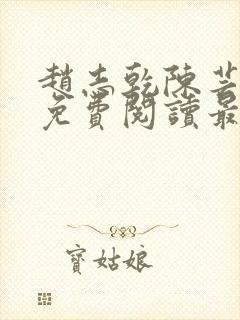 趙志乾陳
免費閱讀最
寶姑娘